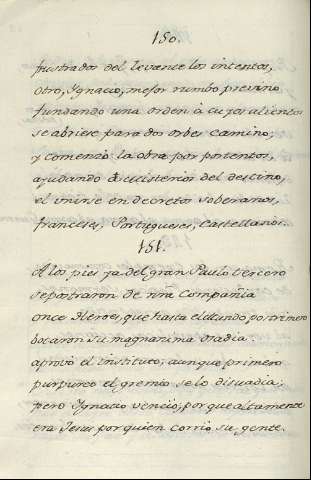 150.
frustrados del levante los intentos,
otro, Ignacio, mejor rumbo previno
fundando una orden à cuyos alientos
se abriese para dos orbes camino;
y comenzò la obra por portentos,
ayudando à misterios del destino,
el unirse en decretos soberanos,
franceses, Portugueses, Castellanos.
151.
A los pies ya del gran Paulo tercero
se postraron de nra Compañia
once Heroes, que hasta el Mundo postrimero
tocaron su magnanima osadia:
aprobò el instituto, aunque primero
purpureo el gremio se lo disuadia;
pero Ignacio venciò, porque altamente
era Jesus por quien corrio su gente.